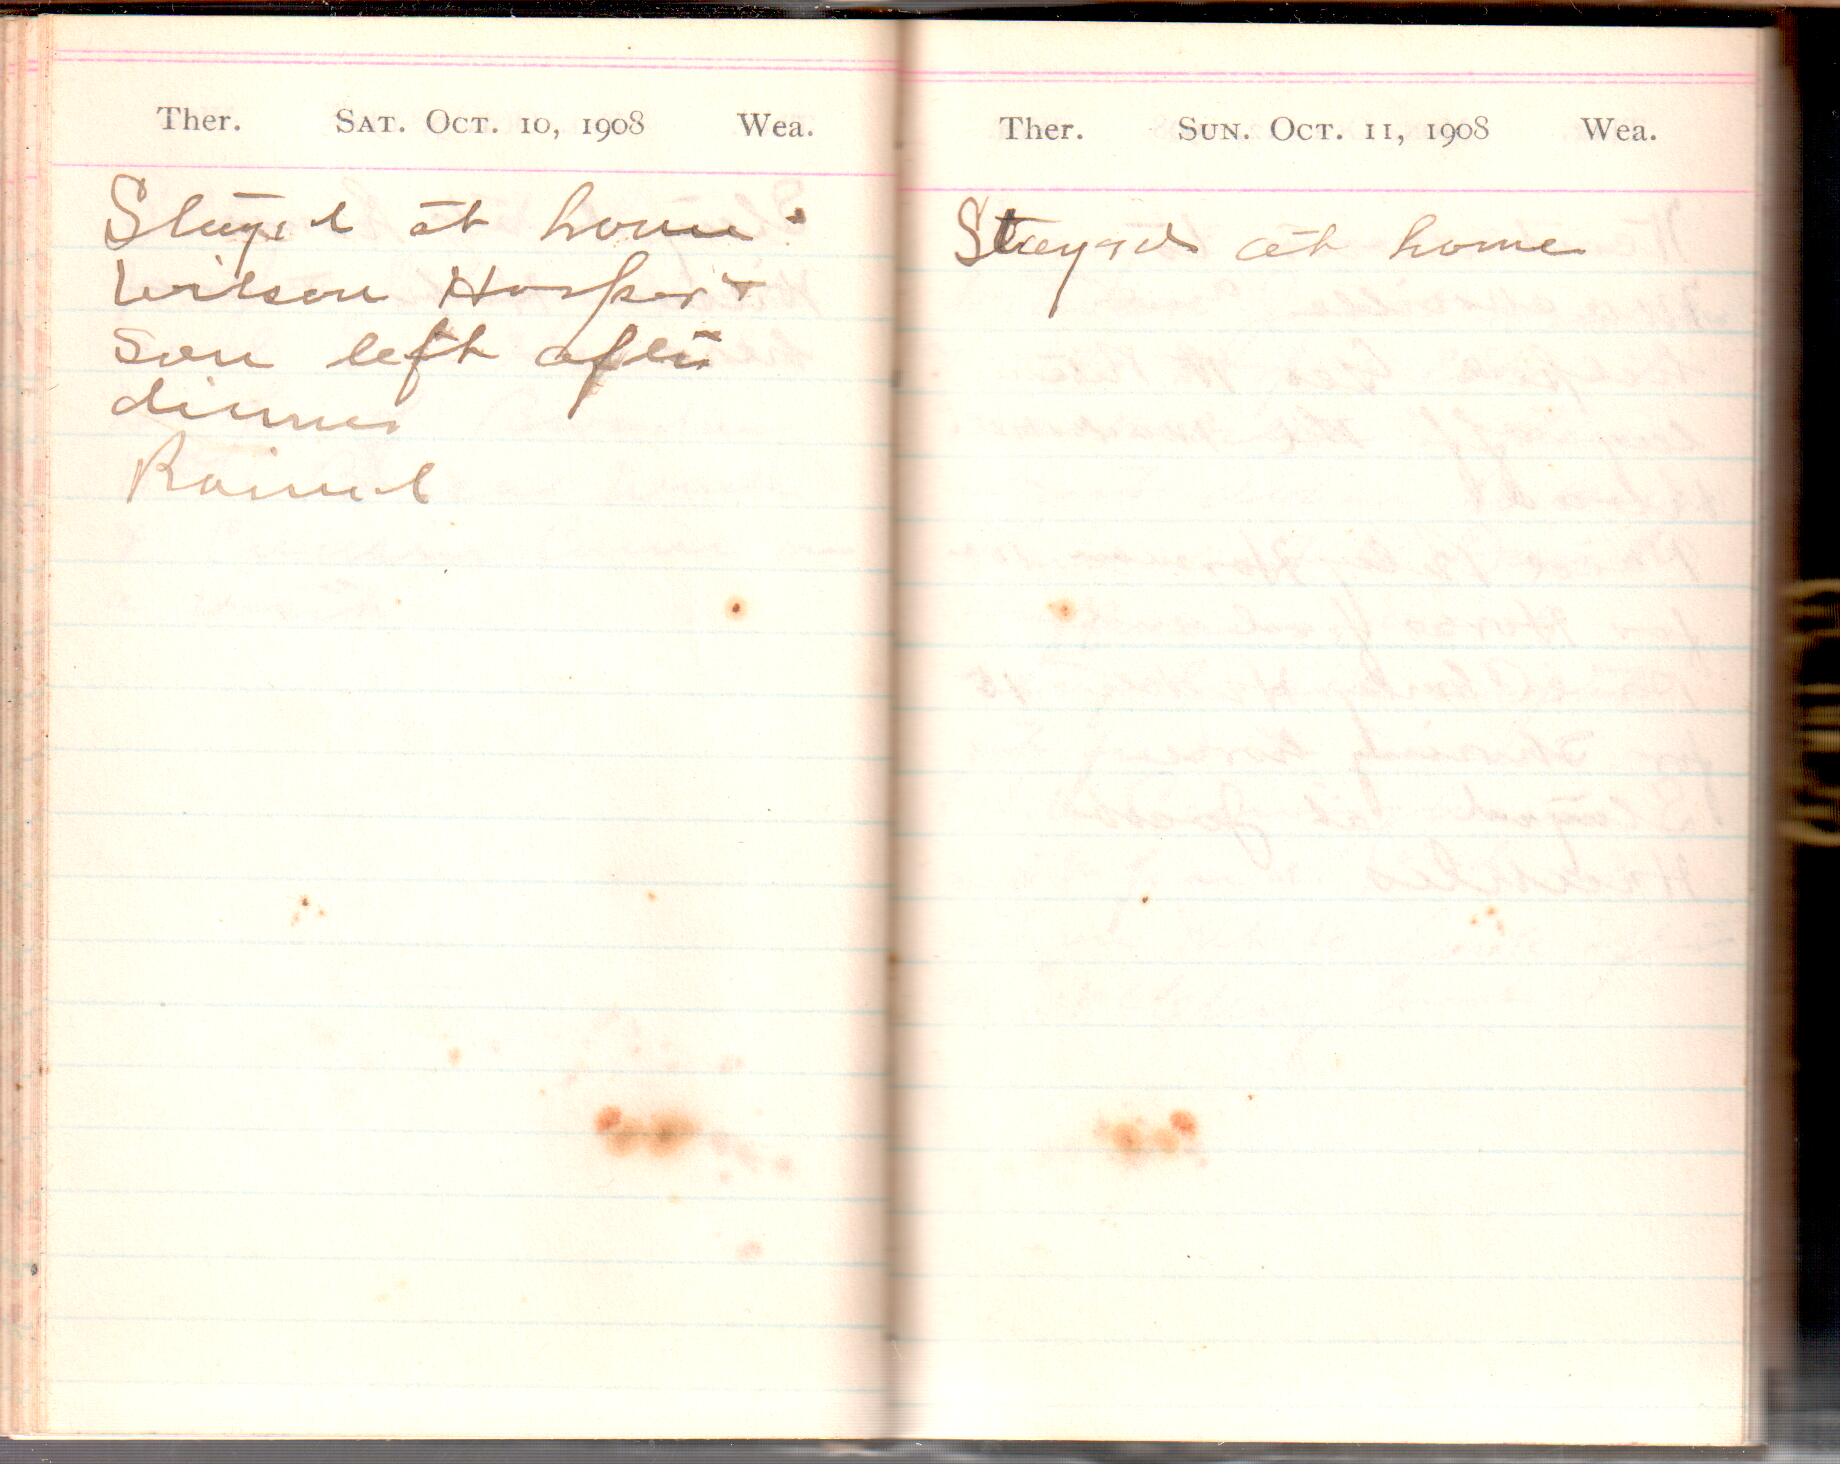 Ther. Sat. Oct. 10, 1908 Wea.
Stayed at home
Wilson Hosper +
son left after
dinner
Rained
Ther. Sun. Oct. 11, 1908 Wea.
Stayed at home